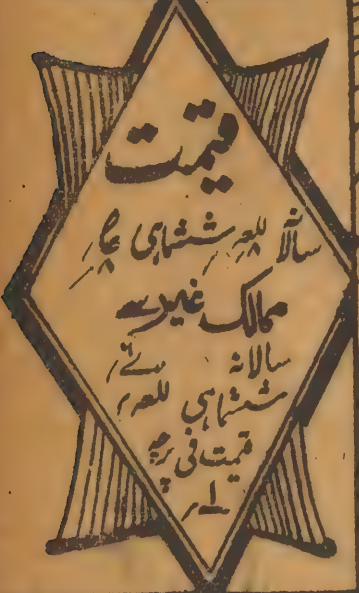 قیمت
سالانہ للعہ ششماہی عگار
ممالک غیر سے
سالانہ
ششماہی للعہ
قیمت فی پرچہ